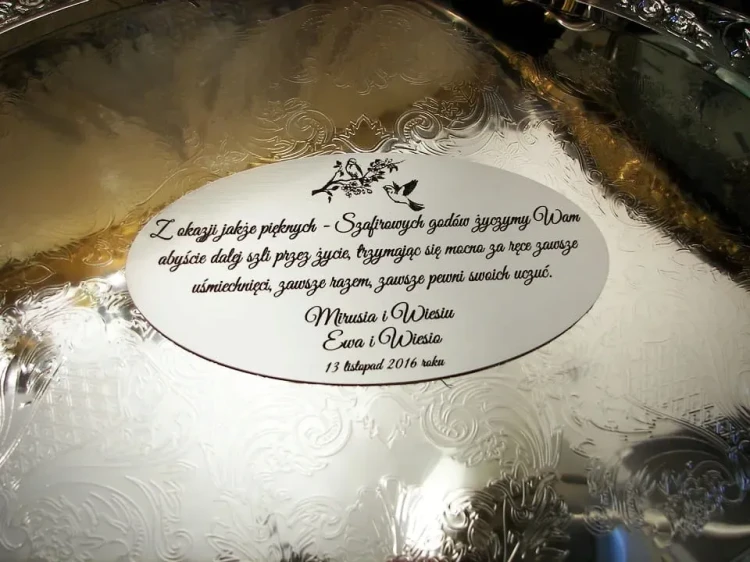 Z okazji jakże pięknych - Szafirowych godów życzymy Wam
abyście dalej szli przez życie, trzymając się mocno za ręce zawsze
uśmiechnięci, zawsze razem, zawsze pewni swoich uczuć.
Mirusia i Wiesiu
Ewa i Wiesio
13 listopad 2016 roku